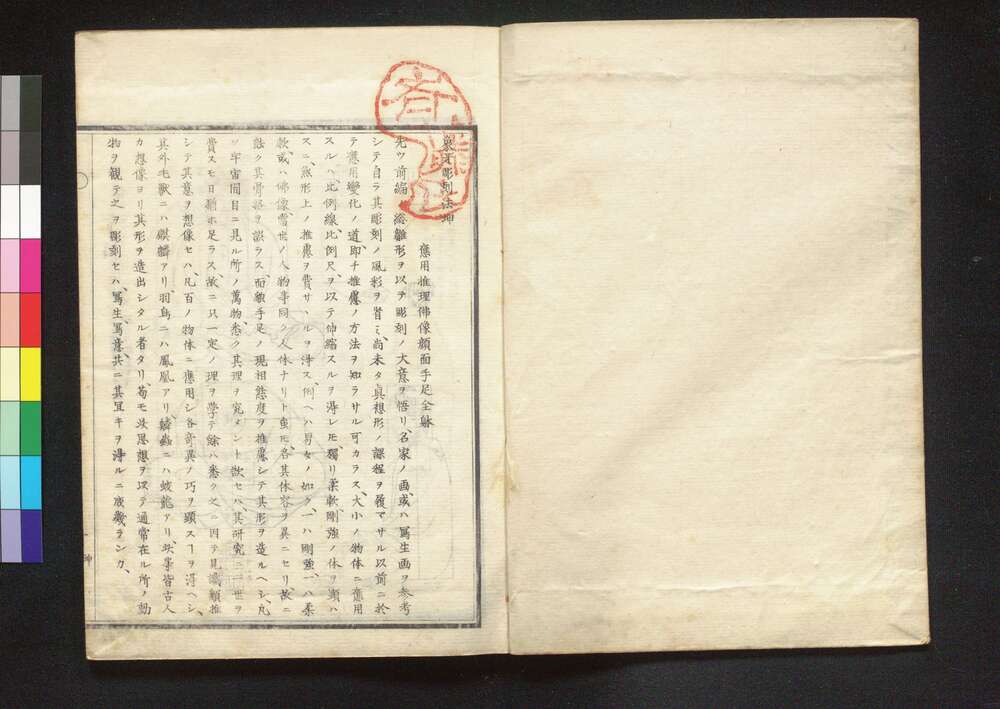 象牙彫刻法坤
應用推理佛像顔面手足全躰
先ツ前編ノ総雛形ヲ以テ彫刻ノ大意ヲ悟リ、名家ノ画、或ハ寫生画ヲ参考
シテ自ラ其彫刻ノ風彩ヲ省ミ、尚未タ真想形ノ課程ヲ履マサル以前ニ於
テ應用變化ノ道即チ推慮ノ方法ヲ知ラサル可カラス、大小ノ物体ニ應用
スルハ比例線、比例尺ヲ以テ伸縮スルヲ得レ𪜈、獨リ柔軟剛強ノ体ヲ顕ハ
スニ、無形上ノ推慮ヲ費サヽルヲ得ス、例ヘハ易セノ如ク、一ハ剛強、一ハ柔
軟、或ハ佛像當世ノ人物等同ク人体ナリト虽𪜈、各其体容ヲ異ニセリ、故ニ
能ク其骨格ヲ誤ラス、面貌手足ノ現相態度ヲ推慮シテ其形ヲ造ルヘシ、凡
ソ宇宙間目ニ見ル所ノ萬物、悉ク其理ヲ究メント欲セハ、其研究ニ一世ヲ
費スモ日猶ホ足ラス、故ニ只一定ノ理ヲ學テ餘ハ悉ク之ニ因テ見識類推
シテ其意ヲ想像セハ、凡百ノ物体ニ應用シ各奇異ノ巧ヲ顕スヿヲ得ヘシ、
其外毛獣ニハ麒麟アリ、羽鳥ニハ鳳凰アリ、鱗蟲ニハ蛟龍アリ、此等皆古人
カ想像ヨリ其形ヲ造出シタル者タリ、苟モ此思想ヲ以テ通常在ル所ノ動
物ヲ観テ之ヲ彫刻セハ、寫生、寫意、共ニ其宜キヲ得ルニ庶幾ランカ、